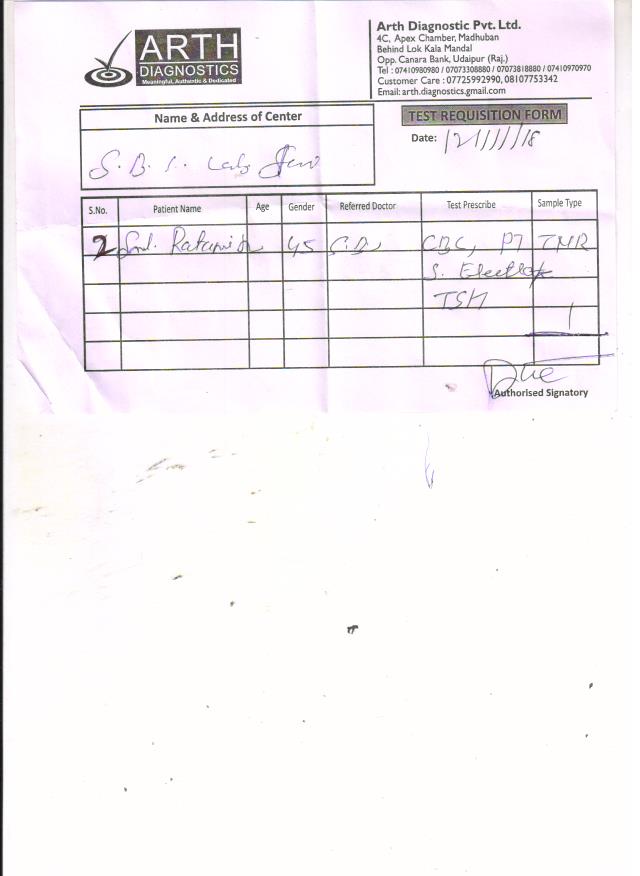 ARTH
DIAGNOSTICS
Meaningful, Authentic & Dedicated
Arth Diagnostic Pvt. Ltd.
4C, Apex Chamber, Madhuban
Behind Lok Kala Mandal
Opp. Canara Bank, Udaipur (Raj.)
Tel : 07410980980 / 07073308880 / 07073818880 / 07410970970
Customer Care : 07725992990, 08107753342
Email: arth.diagnostics.gmail.com
Name & Address of Center
TEST REQUISITION FORM
Date:
S.No. Patient Name Age Gender Referred Doctor Test Prescribe Sample Type
2 45 CBC, PT INR
TSH
Authorised Signatory